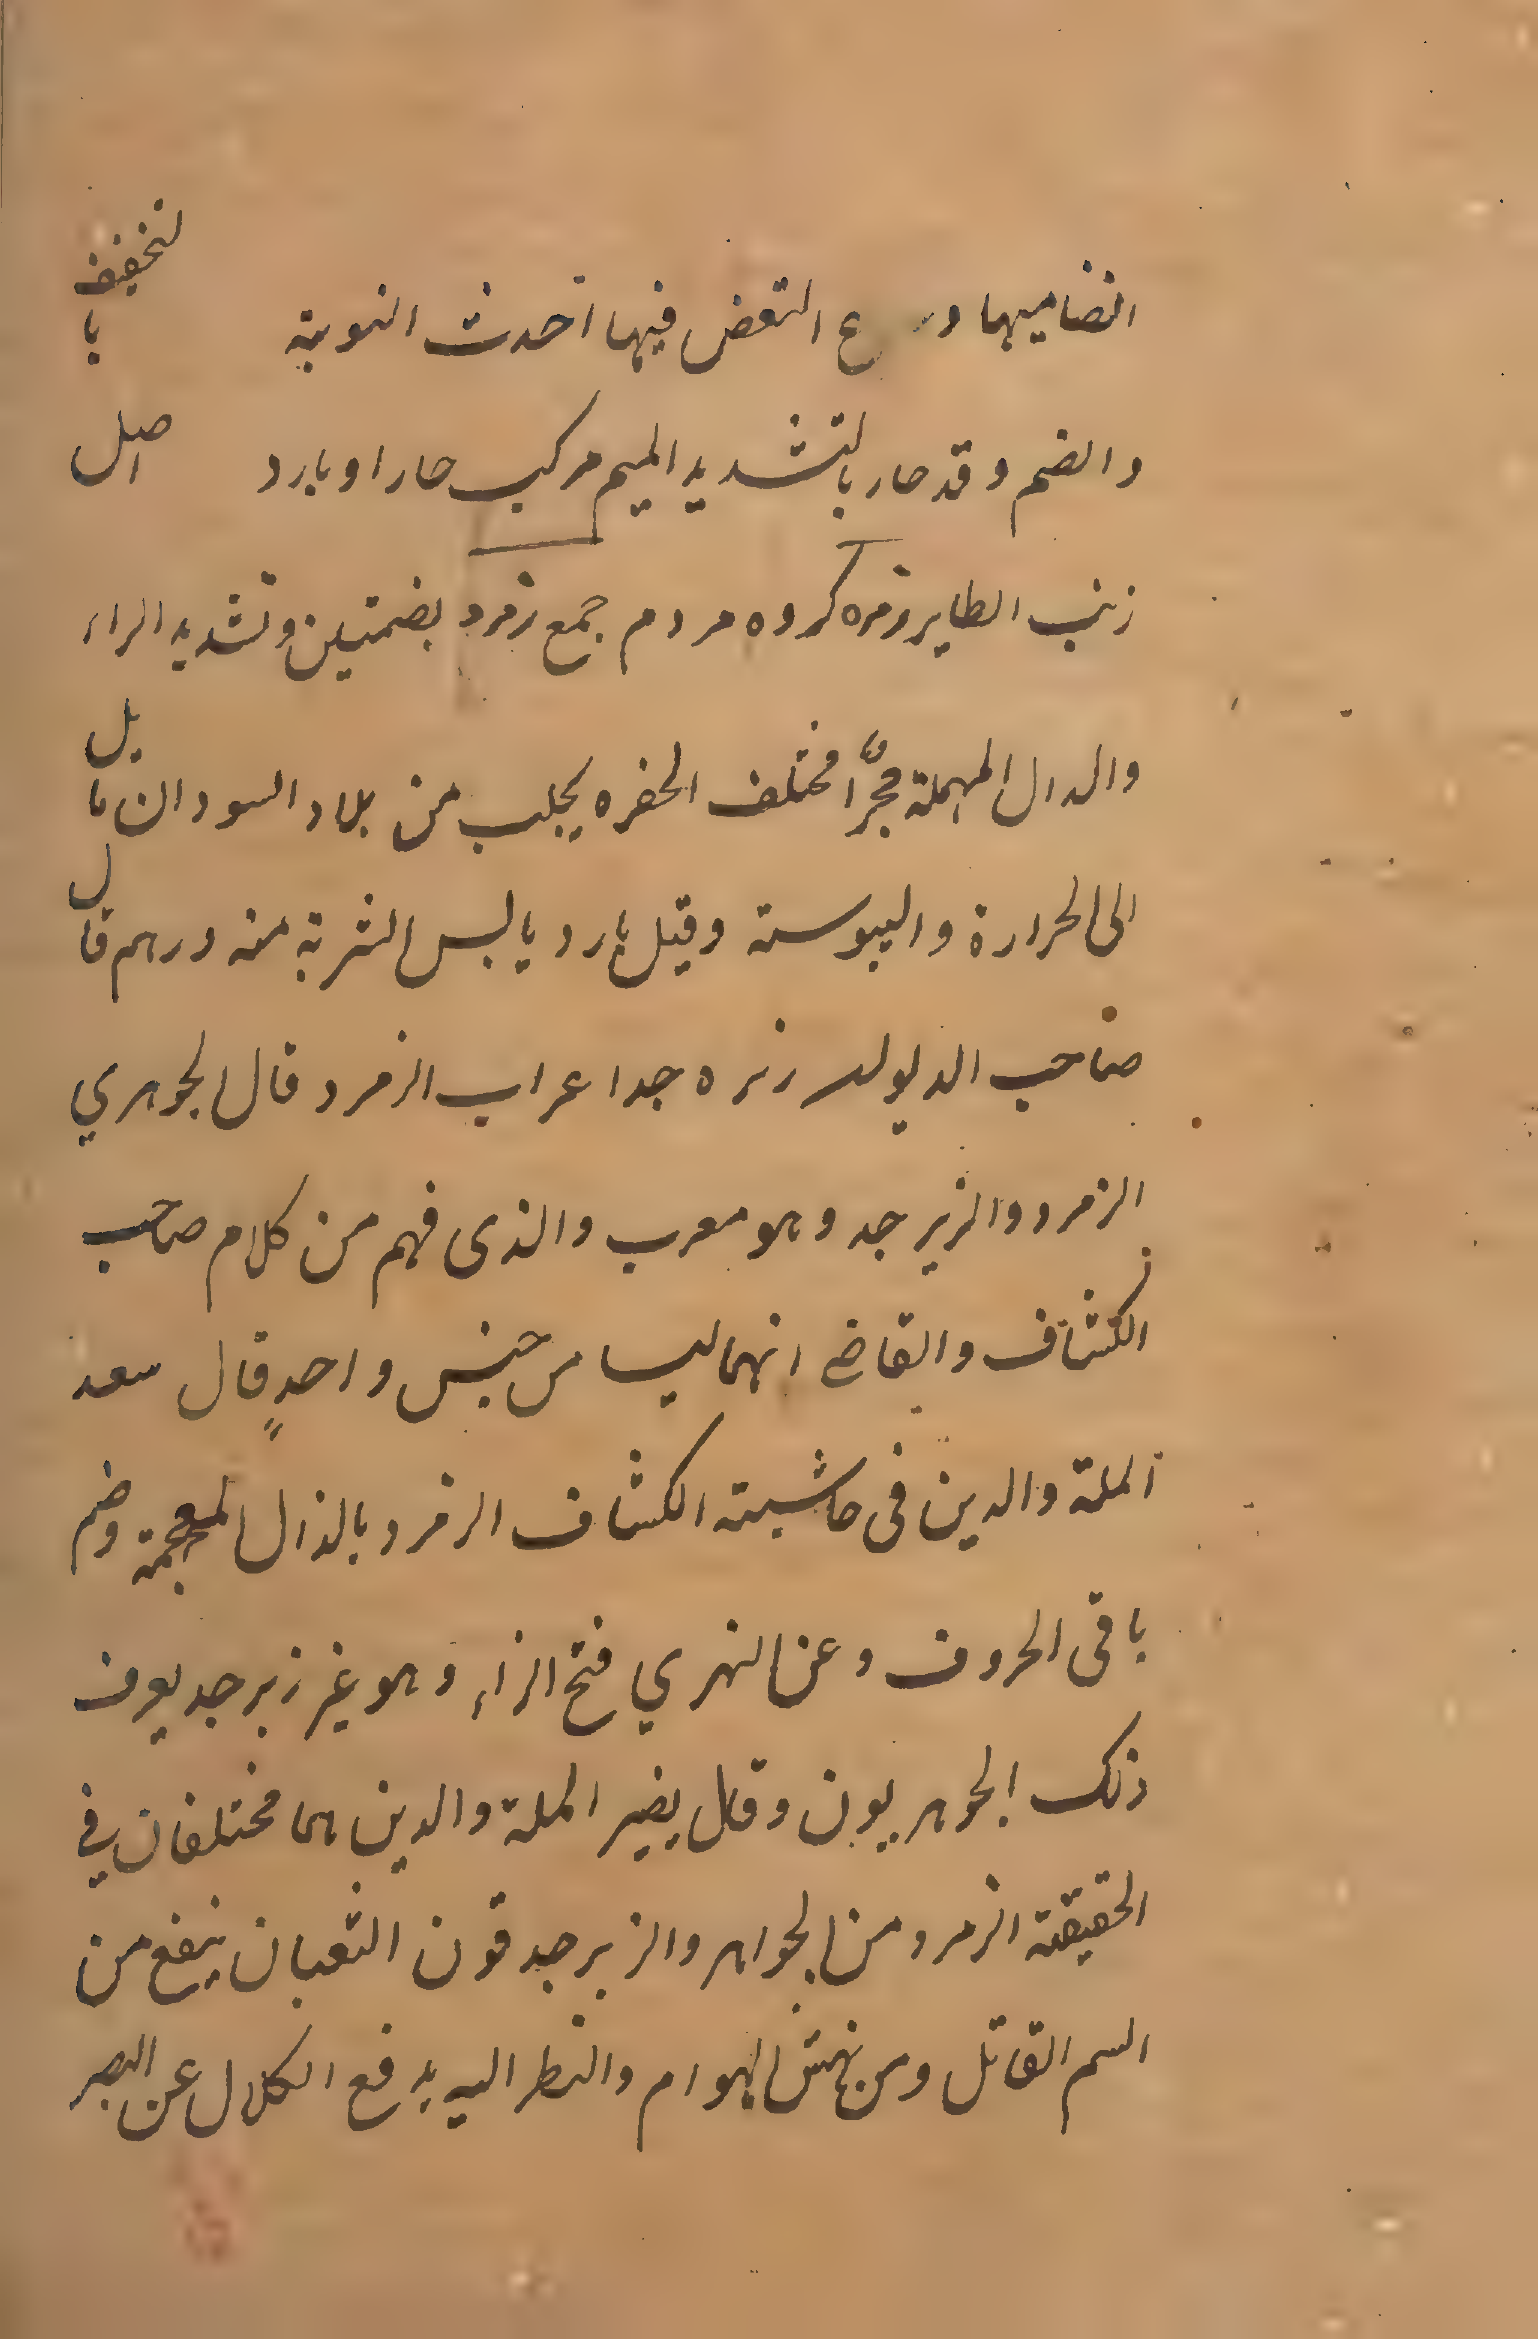 انصاميها و ع التعض فيها احدث النوبية بالتخفيف
والضم وقد حار بالتشديد الميم مركب حارا وبارد اصل
زنب الطاير وزمره كروه مردم جمع زمرد بضمتين وتشديد الراء
والدال المهملة حجرا مختلف الحضره يجلب من بلاد السودان مايل
الى الحرارة واليبوسته وقيل بارد يابس الشربة منه درهم قال
صاحب جدا اعراب الزمرد قال الجوهري
الزمرد والزبرجد وهو معرب والذى فهم من كلام صاحب
الكشاف والقاضي انهما ليسا من جنس واحدٍ قال سعد
الملة والدين فى حاشيته الكشاف الزمرد بالذال المعجمة وضم
باقى الحروف وعن الزهري فتح الزاء وهو غير زبرجد يعرف
ذلك الجوهريون وقال نصير الملة والدين هما مختلفان في
الحقيقة الزمرد من الجواهر والزبرجد قون الثعبان ينفع من
السم القاتل ومن نهش الهوام والنظر اليه يدفع الكلال عن البصر